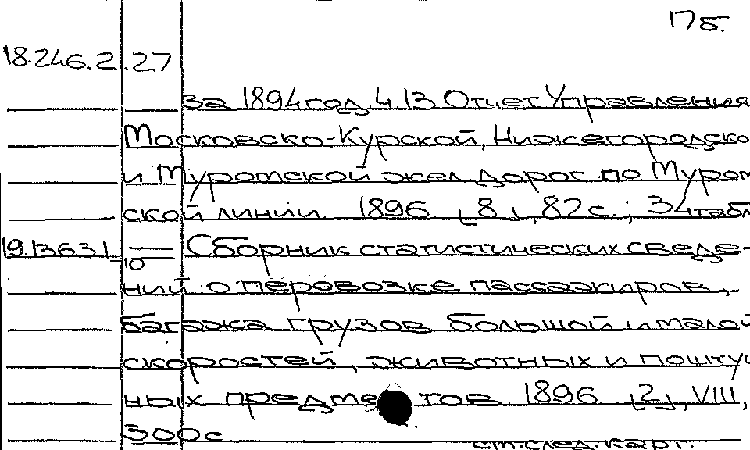 17б.
18.246.2.27
за 1894 год. Ч.13 Отчет Управления
Московско-Курской, Нижегородско
и Муромской жел дорог по Муром
ской линии. 1896 [8], 82 с.; 34 табл
19.13631 Сборник статистических сведе-
10
ний о перевозке пассажиров,
багажа грузов большой и малой
скоростей, животных и поштуч
ных предметов 1896 [2], VIII,
300с
см.след.карт.